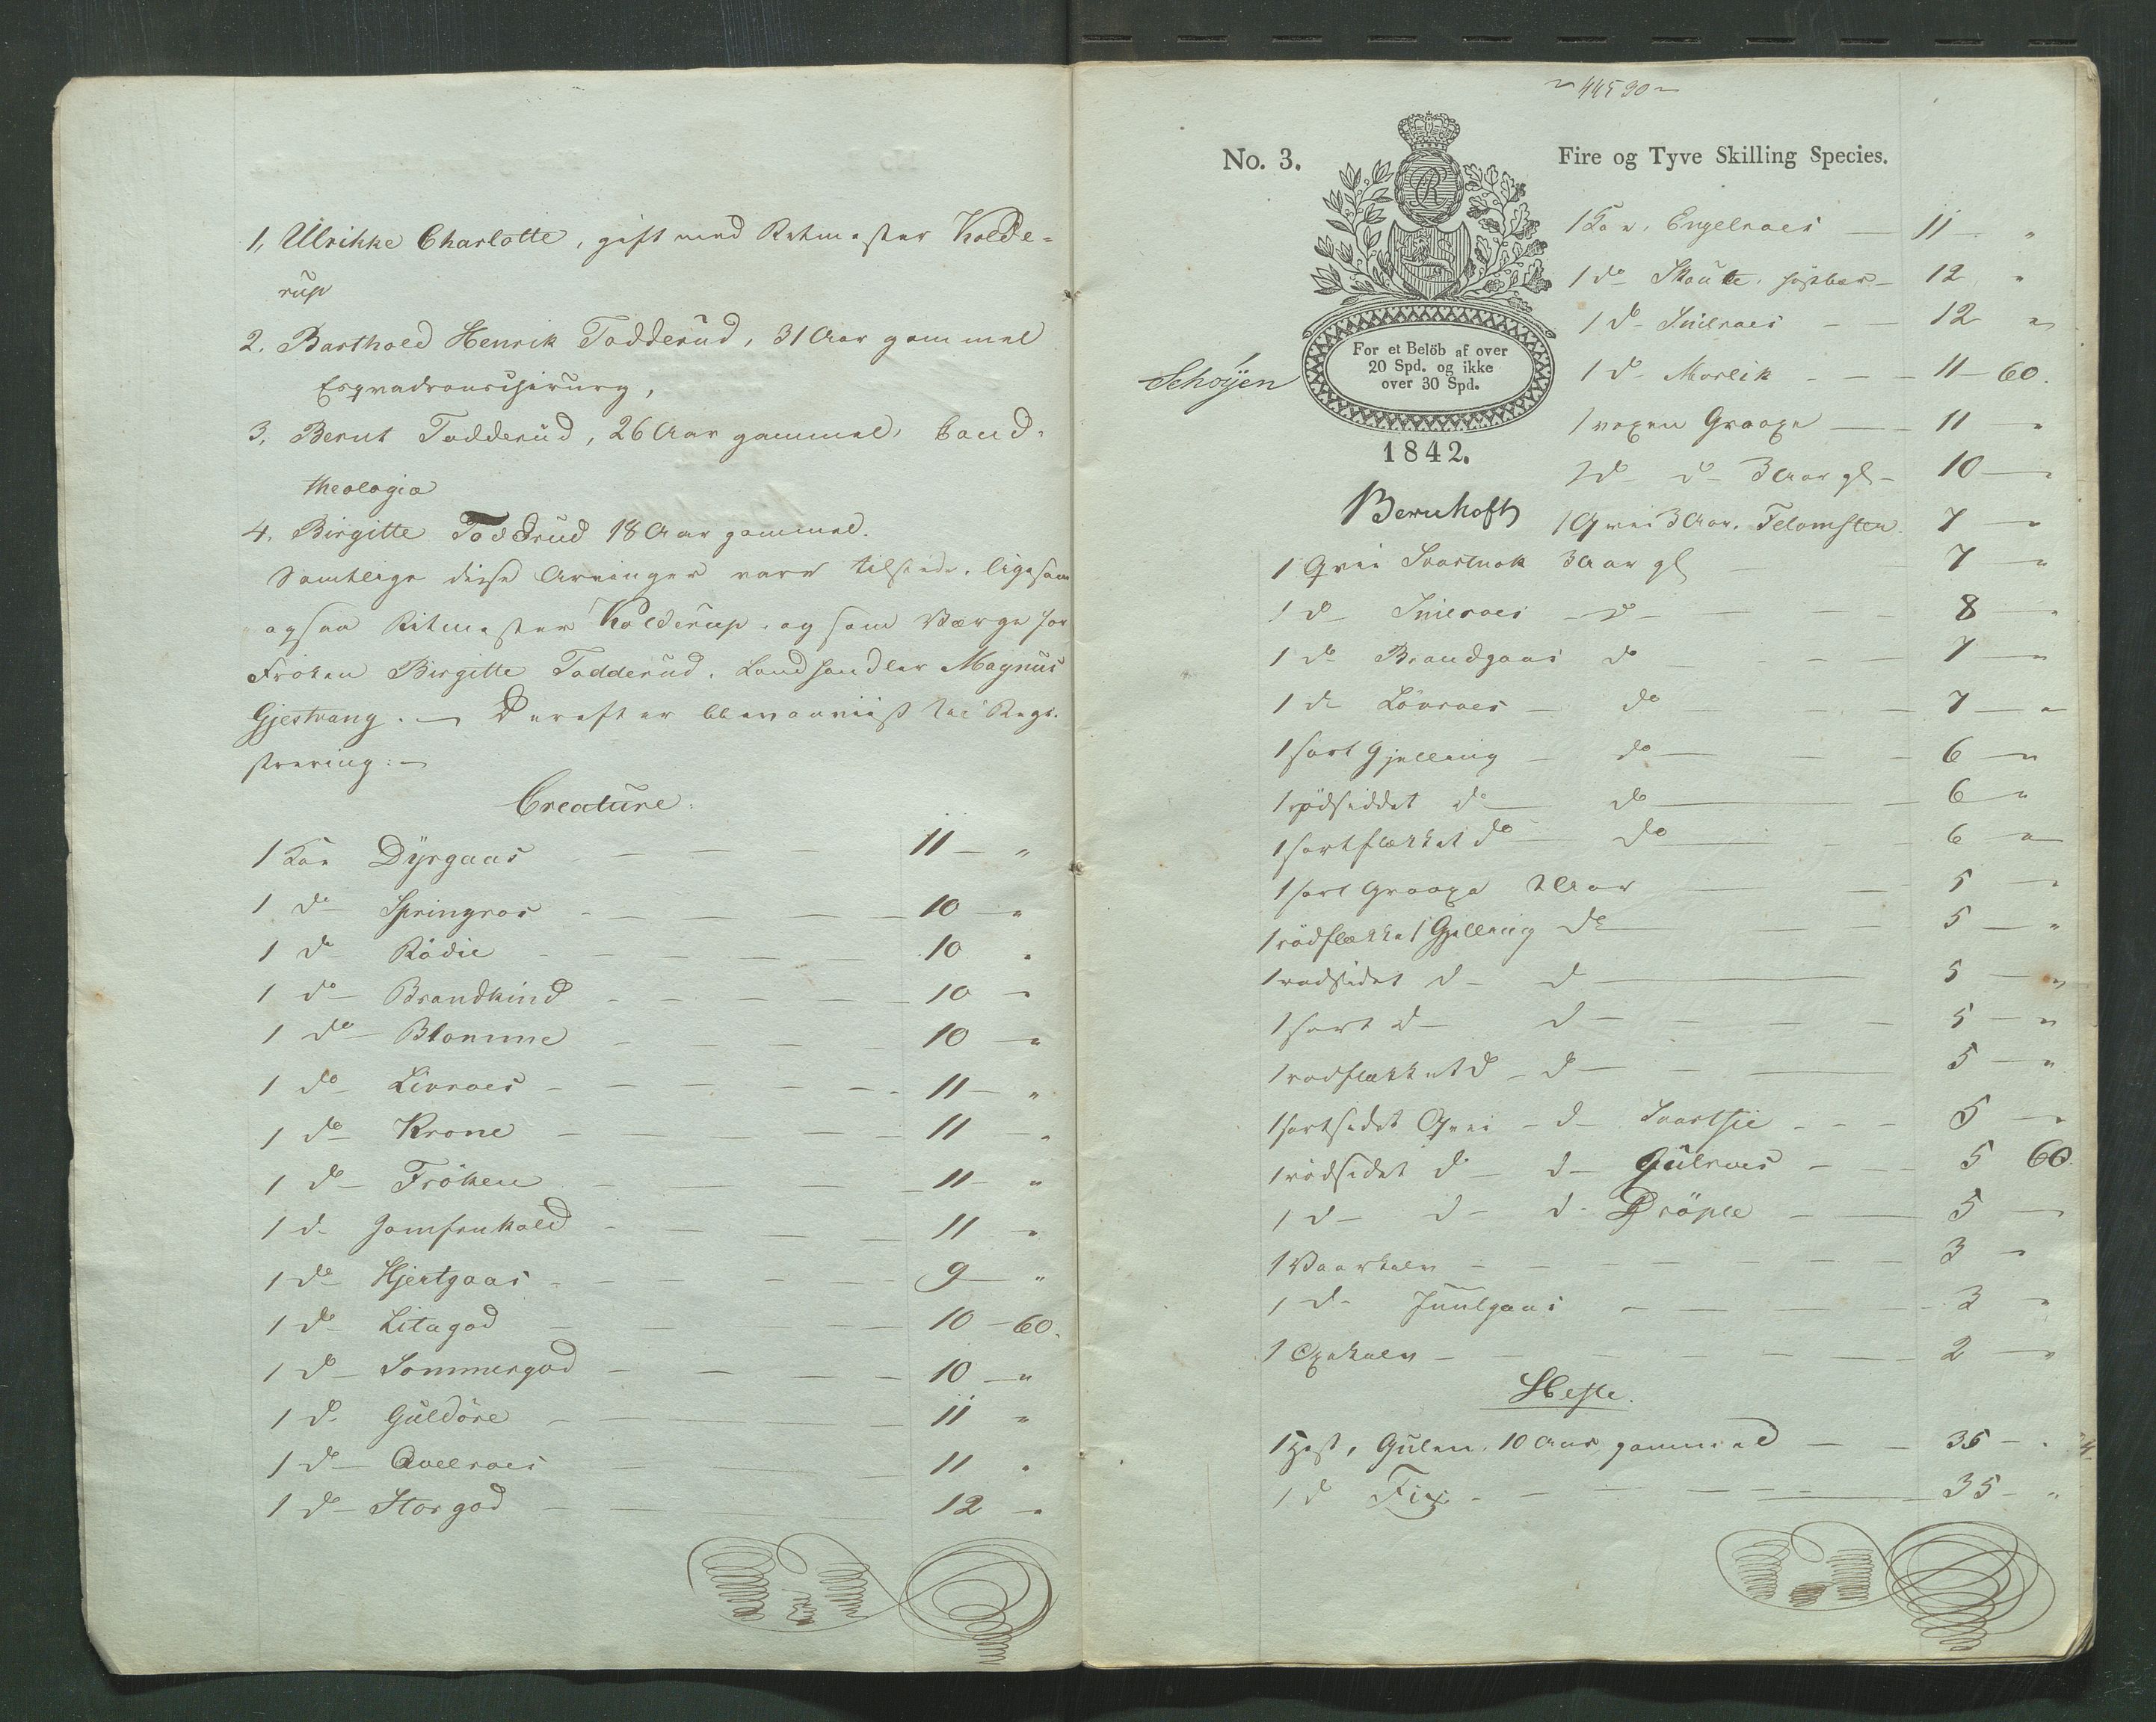 1, Ulrikke Charlotte, gift med Ritmester Kolde-
rup
2. Barthold Henrik Todderud, 31 Aar gammel
Esqvadronschirurg,
3. Bernt Todderud, 26 Aar gammel, Cand.
theologia
4. Birgitte Toddrud 18 Aar gammel.
Samtlige disse Arvinger vare tilstede, ligesom
ogsaa Ritmester Kolderup, og som Værge for
Fröken Birgitte Todderud, Landhandler Magnus
Gjestvang. — Derefter blev anviist til Regi-
strering: —
Creature:
1 Koe Dyrgaas — 11 — "
1 do Springros — 10 — "
1 do Rödsie — 10 "
1 do Brandkind — 10 — "
1 do Blomme — 10 — "
1 do Livroes — 11 — "
1 do Krone — 11 — "
1 do Fröken — 11 — "
1 do Jomfrukold — 11 — "
1 do Hjertgaas — 9 — "
1 do Litagod — 10 — 60.
1 do Sommergod — 10 — "
1 do Guldöre — 11 "
1 do Qvelroes — 11 "
1 do Storgod — 12 — "
44590
No. 3.
Fire og Tyve Skilling Species.
For et Belöb af over
20 Spd. og ikke
over 30 Spd.
1842.
Schøyen
Bernhoft
1 Koe, Engelroes — 11 — "
1 do Skaute, — 12 "
1 do Smilroes — 12 "
1 do Morlik — 11 — 60.
1 voxen Graaxe — 11 — "
1 do do 3 Aar gl — 10 — "
1 Qvie 3 Aar, 7 — "
1 Qvie Svartnok 3 Aar gl 7 — "
1 do Smilroes do — 8 — "
1 do Brandgaas do — 7 — "
1 do Lövroes — do — 7 — "
1 sort Gjelling — do — 6 — "
1 rödsiddet do — do — 6 — "
1 sortflækket do — do — 6 — "
1 sort Graaxe 2 Aar — 5 — "
1 rödflækket Gjelling do — 5 — "
1 rødsidet do — do — 5 — "
1 sort do — do — 5 — "
1 rødflækket do — do — 5 — "
1 sortsidet Qvie — do — Svartsie — 5 — "
1 rödsidet do — do — Gulroes — 5 60.
1 do — do — do — Dröple — 5 —
1 Vaarkalv — 3 — "
1 do Juulgaas — 3 — "
1 Oxekalv — 2 — "
Heste.
1 Hest, Gulen, 10 Aar gammel — 35 — "
1 do Fix — 35 — "